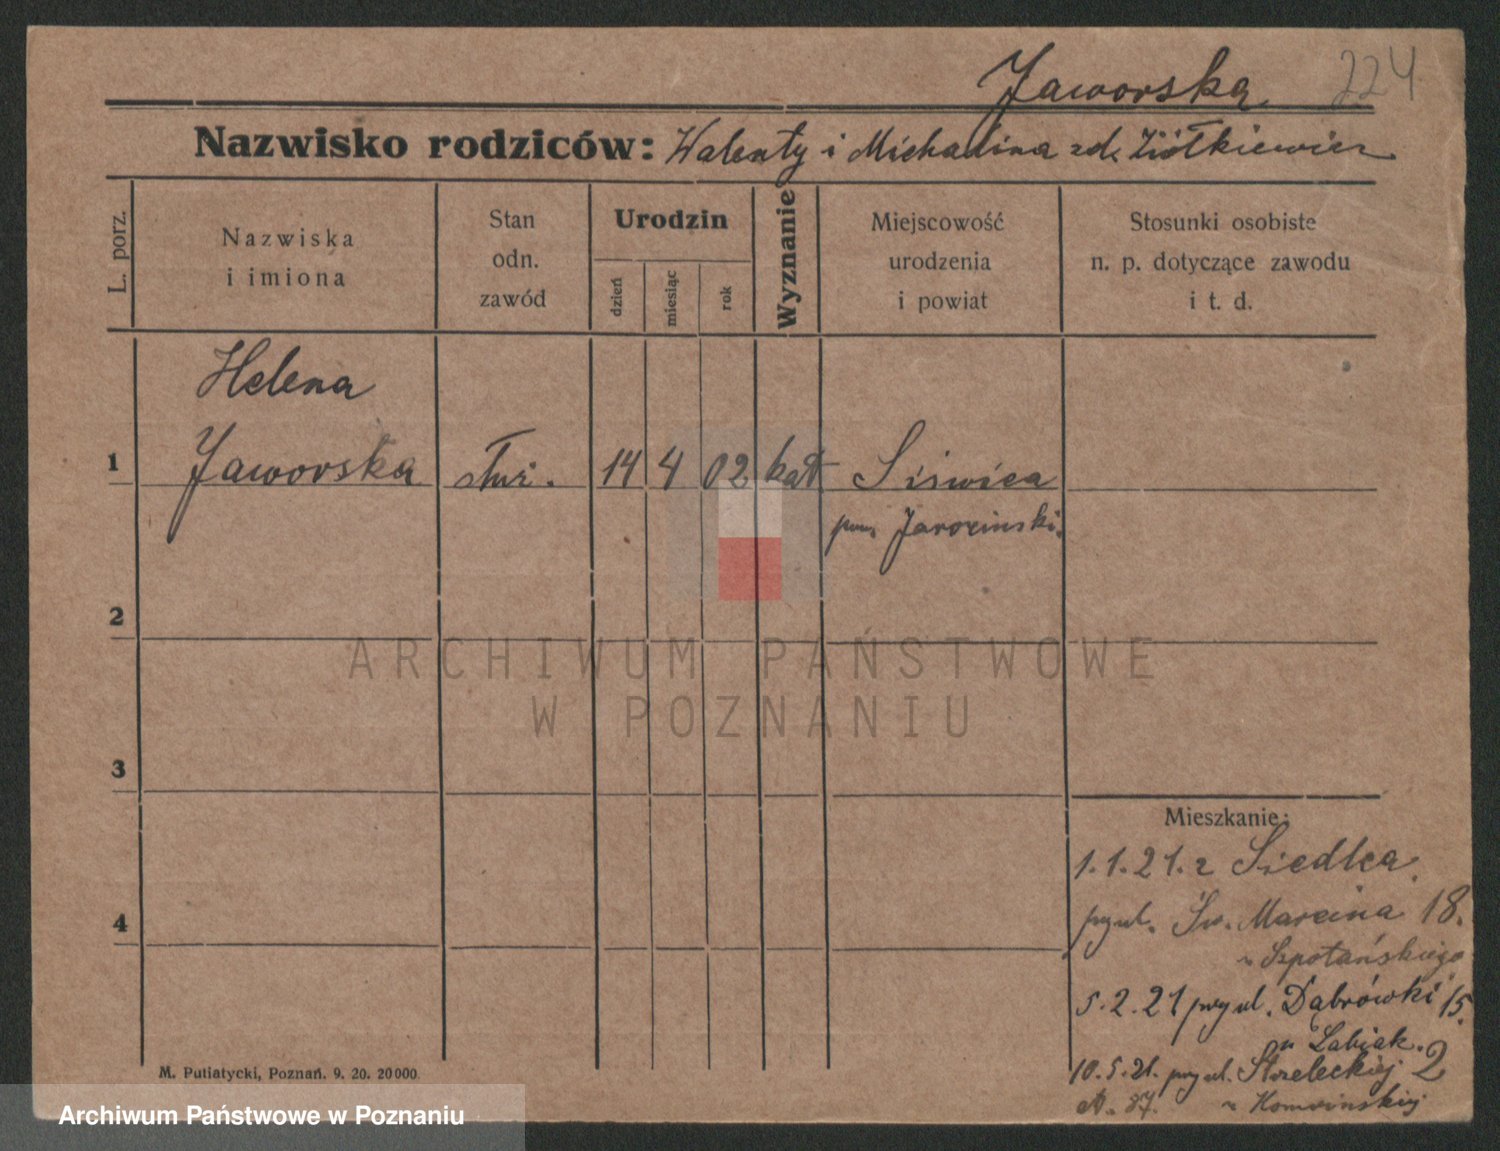 Jaworska 224
Nazwisko rodziców: Walenty i Michalina zd. Ziółkiewicz
L. porz.
Nazwiska
i imiona
Stan
odn.
zawód
Urodzin
dzień
miesiąc
rok
Wyznanie
Miejscowość
urodzenia
i powiat
Stosunki osobiste
n. p. dotyczące zawodu
i t. d.
Helena
1 Jaworska służ. 14 4 02 kat Siświca
pow. Jarociński.
2
3
4
ARCHIWUM PAŃSTWOWE
W POZNANIU
Mieszkanie:
1.1.21. z Siedlca.
przy ul. Św. Marcina 18.
u Szpotańskiego
5.2.21 przy ul. Dąbrówki 15.
u Labiak.
10.5.21. przy ul. Strzeleckiej 2
u
M. Putiatycki, Poznań. 9. 20. 20000.
Archiwum Państwowe w Poznaniu